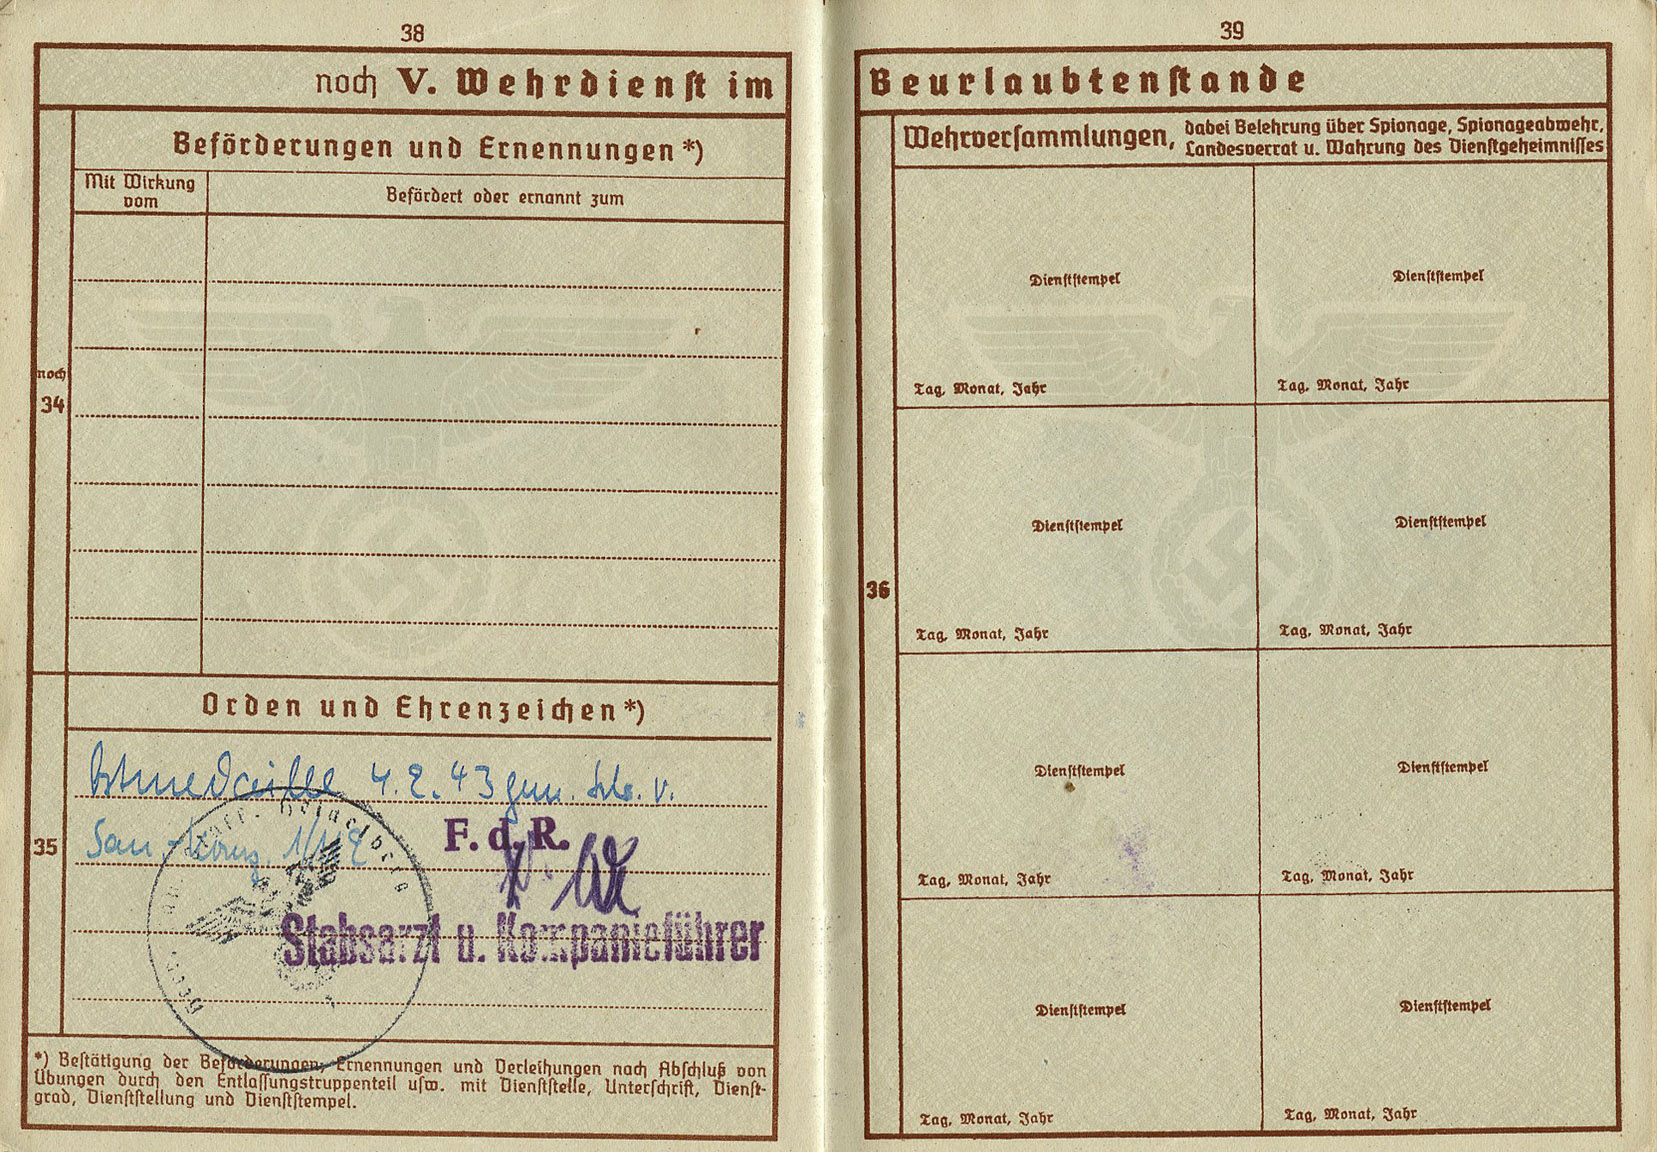 38
noch V. Wehrdienst im
Beförderungen und Ernennungen *)
Mit Wirkung vom
Befördert oder ernannt zum
noch 34
Orden und Ehrenzeichen *)
35
Ostmedaille 4.2.43 gem.
San.
F. d. R.
Stabsarzt u. Kompanieführer
*) Bestätigung der Beförderungen, Ernennungen und Verleihungen nach Abschluß von
Übungen durch den Entlassungstruppenteil usw. mit Dienststelle, Unterschrift, Dienst-
grad, Dienststellung und Dienststempel.
39
Beurlaubtenstande
Wehrversammlungen, dabei Belehrung über Spionage, Spionageabwehr,
Landesverrat u. Wahrung des Dienstgeheimnisses
36
Dienststempel
Dienststempel
Tag, Monat, Jahr
Tag, Monat, Jahr
Dienststempel
Dienststempel
Tag, Monat, Jahr
Tag, Monat, Jahr
Dienststempel
Dienststempel
Tag, Monat, Jahr
Tag, Monat, Jahr
Dienststempel
Dienststempel
Tag, Monat, Jahr
Tag, Monat, Jahr